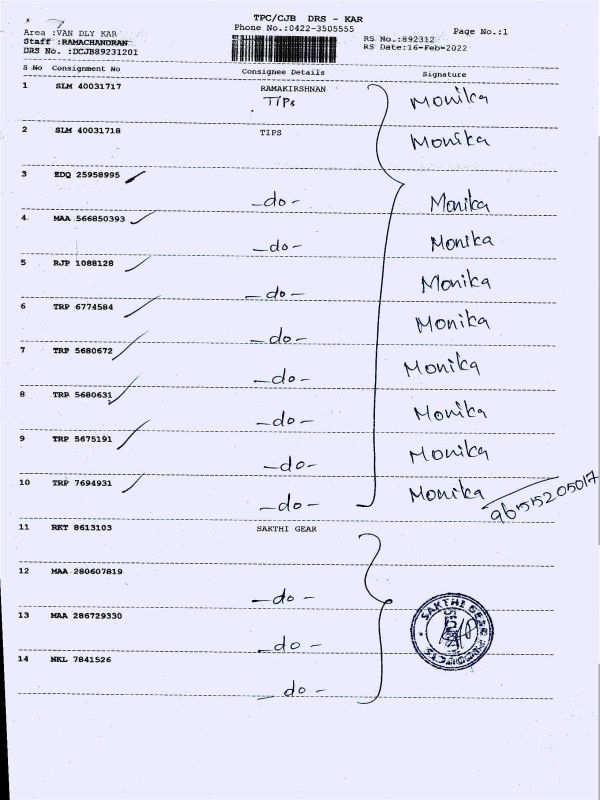 TPC/CJB DRS - KAR
Area :VAN DLY KAR
Phone No.:0422-3505555
Page No.:1
Staff :RAMACHANDRAN
RS No.:892312
DRS No. :DCJB89231201
RS Date:16-Feb-2022
S No Consignment No Consignee Details Signature
1 SLM 40031717 RAMAKIRSHNAN Monika
TIPs
2 SLM 40031718 TIPS Monika
3 EDQ 25958995
-do- Monika
4 MAA 566850393
-do- Monika
5 RJP 1088128
-do- Monika
6 TRP 6774584
-do- Monika
7 TRP 5680672
-do- Monika
8 TRP 5680631
-do- Monika
9 TRP 5675191
-do- Monika
10 TRP 7694931
-do- Monika
11 RKT 8613103 SAKTHI GEAR
12 MAA 280607819
-do-
13 MAA 286729330
-do-
SAKTHI GEAR PRODUCTS
14 NKL 7841526
-do-